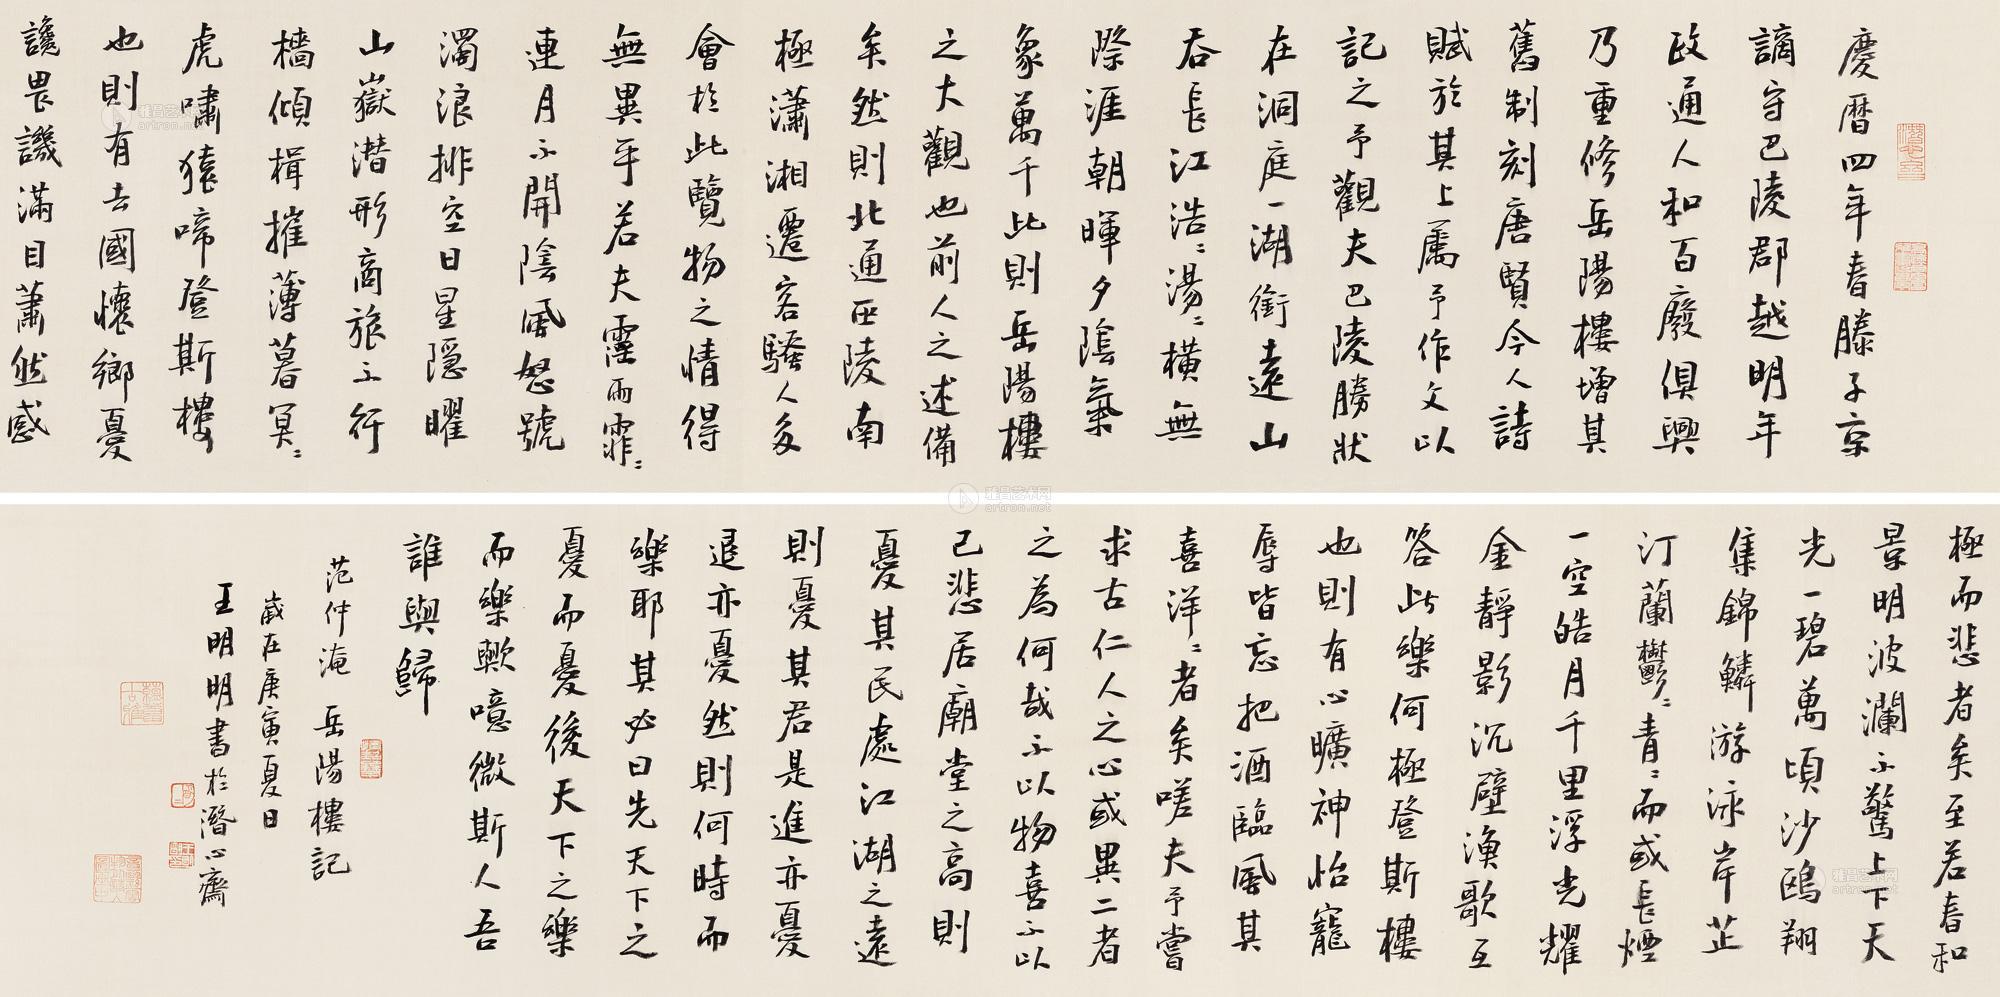 慶曆四年春滕子京
謫守巴陵郡越明年
政通人和百廢俱興
乃重修岳陽樓增其
舊制刻唐賢今人詩
賦於其上屬予作文以
記之予觀夫巴陵勝狀
在洞庭一湖銜遠山
吞長江浩〻湯〻橫無
際涯朝暉夕陰氣
象萬千此則岳陽樓
之大觀也前人之述備
矣然則北通巫陵南
極瀟湘遷客騷人多
會於此覽物之情得
無異乎若夫霪雨霏〻
連月不開陰風怒號
濁浪排空日星隱曜
山嶽潛形商旅不行
檣傾楫摧薄暮冥〻
虎嘯猿啼登斯樓
也則有去國懷鄉憂
讒畏譏滿目蕭然感
極而悲者矣至若春和
景明波瀾不驚上下天
光一碧萬頃沙鷗翔
集錦鱗游泳岸芷
汀蘭鬱〻青〻而或長煙
一空皓月千里浮光耀
金靜影沉璧漁歌互
答此樂何極登斯樓
也則有心曠神怡寵
辱皆忘把酒臨風其
喜洋〻者矣嗟夫予嘗
求古仁人之心或異二者
之為何哉不以物喜不以
己悲居廟堂之高則
憂其民處江湖之遠
則憂其君是進亦憂
退亦憂然則何時而
樂耶其必曰先天下之
憂而憂後天下之樂
而樂歟噫微斯人吾
誰與歸
范仲淹 岳陽樓記
歲在庚寅夏日
王明明書於潛心齋
雅昌艺术网
artron.net